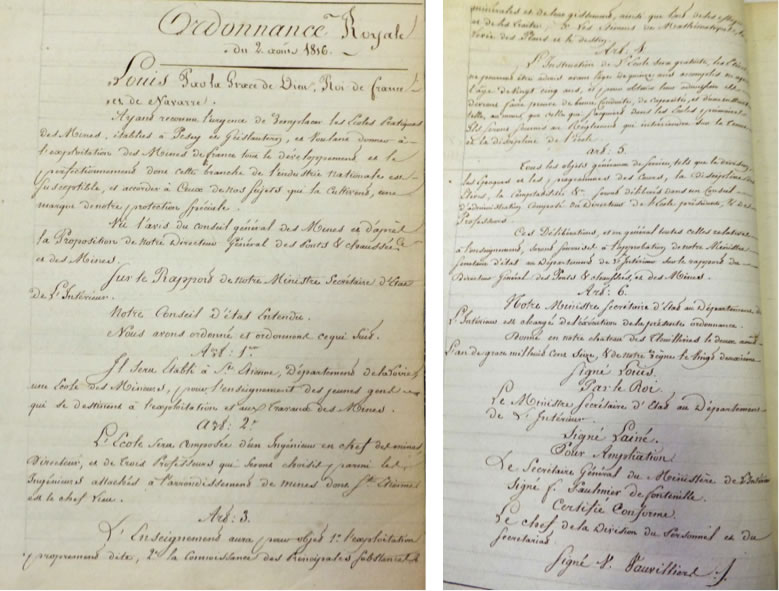 Ordonnance Royale
du 2 août 1816.
Louis Par la Grace de Dieu, Roi de france
et de Navarre.
Ayant reconnu l'urgence de remplacer les Ecoles Pratiques
des Mines, établies à Pesey et Geislautern, et Voulant donner à
l'exploitation des Mines de france tout le développement et le
perfectionnement dont cette branche de l'industrie nationale est
susceptible, et accorder à Ceux de nos sujets qui la Cultivent, une
marque de notre protection spéciale.
Vu l'avis du Conseil général des Mines et d'après
la Proposition de notre Directeur Général des Ponts & chaussées
et des Mines.
Sur le Rapport de notre Ministre Secrétaire d'Etat
de l'Intérieur.
Notre Conseil d'état Entendu.
Nous avons ordonné et ordonnons ce qui Suit.
Art: 1er
Il sera Etabli à St. Etienne, Département de la Loire
une Ecole des Mineurs, pour l'enseignement des jeunes gens
qui se destinent à l'exploitation et aux travaux des Mines.
Art: 2e
L'Ecole sera Composée d'un Ingénieur en chef des mines
Directeur, et de trois Professeurs qui seront choisis parmi les
Ingénieurs attachés à l'arrondissement de mines dont St. Etienne
est le chef lieu.
Art: 3.
L'Enseignement aura pour objet 1° l'exploitation
proprement dite, 2° la Connoissance des Principales Substances
minérales et de leur gissement, ainsi que l'art de les
et de les traiter, 3° les Elémens de Mathématiques, la
levée des Plans et le dessin.
Art. 4.
L'Instruction de l'Ecole sera gratuite, les
ne pourront être admis avant l'âge de quinze ans accomplis ni après
l'âge de Vingt cinq ans, et pour obtenir leur admission ils
devront faire preuve de bonne Conduite, de Capacité, et d'une
telle, au moins que celle qui s'acquiert dans les Ecoles primaires.
Ils seront soumis au Règlement qui interviendra sur la tenue
et la discipline de l'école.
art. 5.
Tous les objets généraux de service, tels que la division,
les époques et les programmes des Cours, la discipline des
Elèves, la Comptabilité &a. seront délibérés dans un Conseil
d'administration Composé du Directeur de l'Ecole président, & des
Professeurs.
Ces Délibérations, et en général toutes celles relatives
à l'enseignement, seront soumises à l'approbation de notre Ministre
secrétaire d'état au Département de l'Intérieur sur le rapport du
Directeur Général des Ponts & chaussées, et des Mines.
Art. 6.
Notre Ministre secrétaire d'Etat au Département de
l'Intérieur est chargé de l'exécution de la présente ordonnance.
Donné en notre chateau des Thuilleries le deux août
l'an de grace mil huit cent seize, & de notre règne le vingt deuxième
Signé Louis.
Par le Roi
Le Ministre Secrétaire d'Etat au Département
de l'Intérieur
Signé Lainé.
Pour Ampliation
Le Secrétaire Général du Ministère de l'Intérieur
Signé f. Paulmier de fontenille
Certifié Conforme
Le chef de la Division du Personnel et du
Secrétariat.
Signé